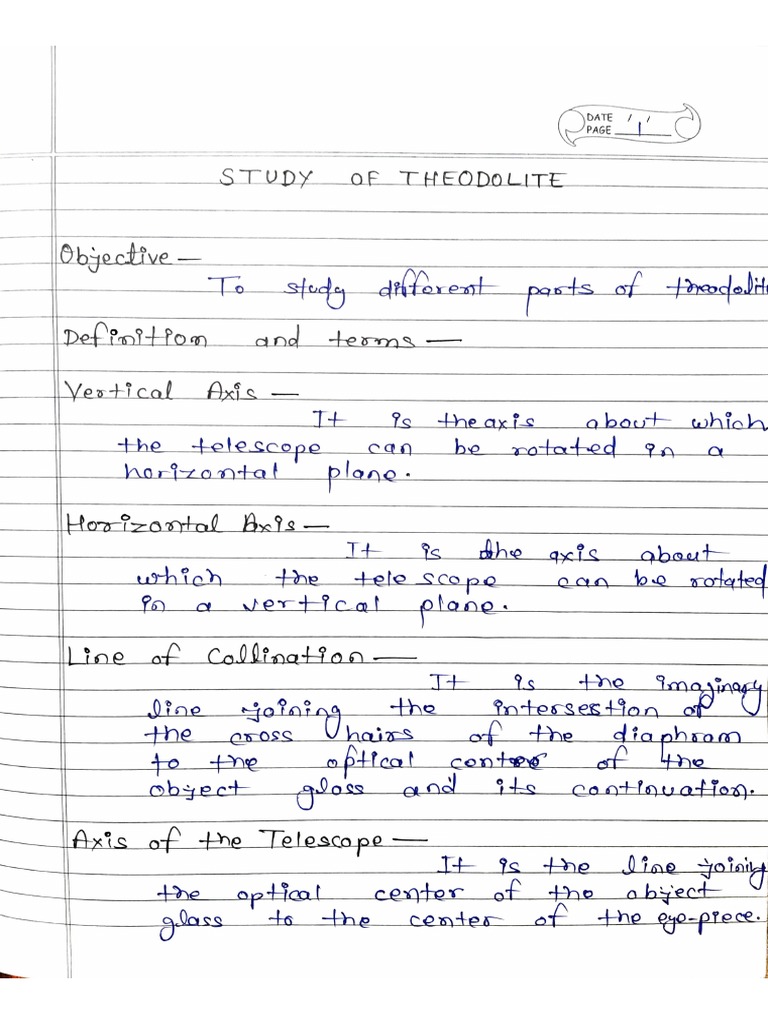 DATE / /
PAGE 1
STUDY OF THEODOLITE
Objective —
To study different parts of theodolite
Definition and terms —
Vertical Axis —
It is the axis about which
the telescope can be rotated in a
horizontal plane.
Horizontal Axis —
It is the axis about
which the telescope can be rotated
in a vertical plane.
Line of Collination —
It is the imaginary
line joining the intersestion of
the cross hairs of the diaphram
to the optical center of the
object glass and its continuation.
Axis of the Telescope —
It is the line joining
the optical center of the object
glass to the center of the eye-piece.